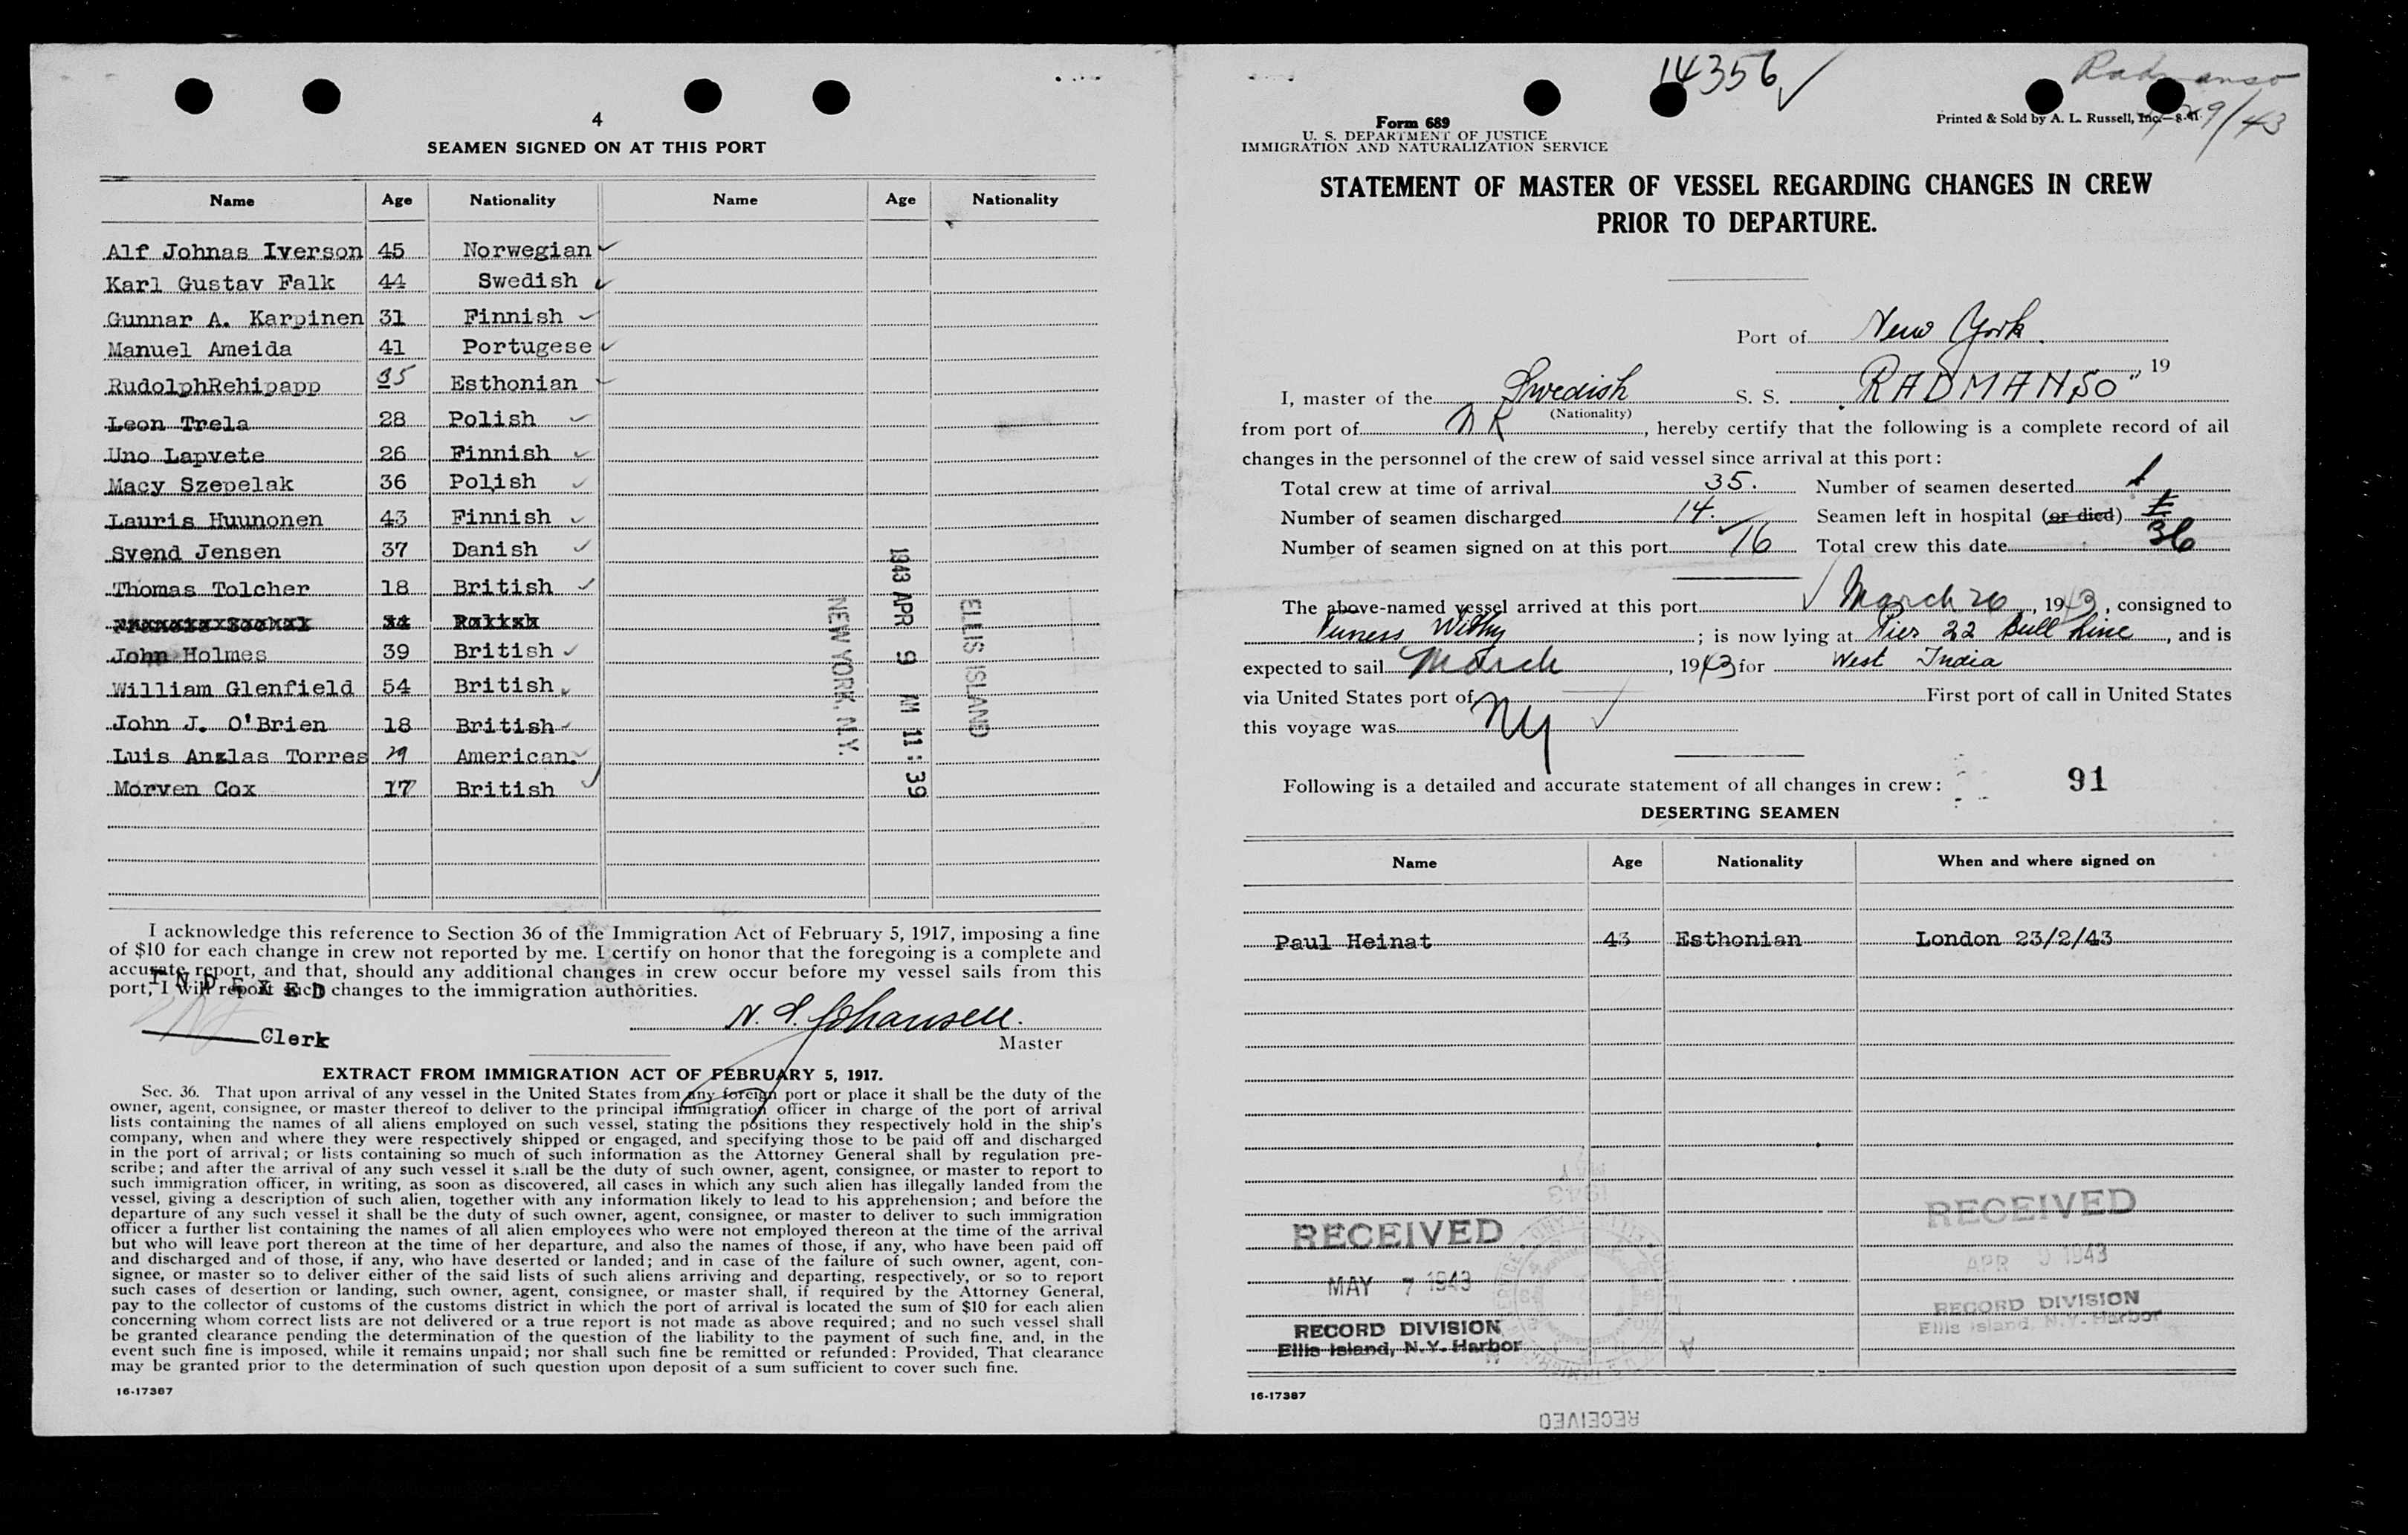 4
SEAMEN SIGNED ON AT THIS PORT
Name Age Nationality Name Age Nationality
Alf Johnas Iverson 45 Norwegian
Karl Gustav Falk 44 Swedish
Gunnar A. Karpinen 31 Finnish
Manuel Ameida 41 Portugese
RudolphRehipapp 35 Esthonian
Leon Trela 28 Polish
Uno Lapvete 26 Finnish
Macy Szepelak 36 Polish
Lauris Huunonen 43 Finnish
Svend Jensen 37 Danish
Thomas Tolcher 18 British
John Holmes 39 British
William Glenfield 54 British
John J. O'Brien 18 British
Luis Anglas Torres 29 American.
Morven Cox 17 British
NEW YORK, N.Y.
1943 APR 9 AM 11:39
ELLIS ISLAND
I acknowledge this reference to Section 36 of the Immigration Act of February 5, 1917, imposing a fine
of $10 for each change in crew not reported by me. I certify on honor that the foregoing is a complete and
accurate report, and that, should any additional changes in crew occur before my vessel sails from this
port, I will report such changes to the immigration authorities.
INDEXED
Clerk
N. S. Johansen.
Master
EXTRACT FROM IMMIGRATION ACT OF FEBRUARY 5, 1917.
Sec. 36. That upon arrival of any vessel in the United States from any foreign port or place it shall be the duty of the
owner, agent, consignee, or master thereof to deliver to the principal immigration officer in charge of the port of arrival
lists containing the names of all aliens employed on such vessel, stating the positions they respectively hold in the ship's
company, when and where they were respectively shipped or engaged, and specifying those to be paid off and discharged
in the port of arrival; or lists containing so much of such information as the Attorney General shall by regulation pre-
scribe; and after the arrival of any such vessel it shall be the duty of such owner, agent, consignee, or master to report to
such immigration officer, in writing, as soon as discovered, all cases in which any such alien has illegally landed from the
vessel, giving a description of such alien, together with any information likely to lead to his apprehension; and before the
departure of any such vessel it shall be the duty of such owner, agent, consignee, or master to deliver to such immigration
officer a further list containing the names of all alien employees who were not employed thereon at the time of the arrival
but who will leave port thereon at the time of her departure, and also the names of those, if any, who have been paid off
and discharged and of those, if any, who have deserted or landed; and in case of the failure of such owner, agent, con-
signee, or master so to deliver either of the said lists of such aliens arriving and departing, respectively, or so to report
such cases of desertion or landing, such owner, agent, consignee, or master shall, if required by the Attorney General,
pay to the collector of customs of the customs district in which the port of arrival is located the sum of $10 for each alien
concerning whom correct lists are not delivered or a true report is not made as above required; and no such vessel shall
be granted clearance pending the determination of the question of the liability to the payment of such fine, and, in the
event such fine is imposed, while it remains unpaid; nor shall such fine be remitted or refunded: Provided, That clearance
may be granted prior to the determination of such question upon deposit of a sum sufficient to cover such fine.
16-17387
14356
Form 689
U. S. DEPARTMENT OF JUSTICE
IMMIGRATION AND NATURALIZATION SERVICE
Printed & Sold by A. L. Russell, Inc.—8-41
STATEMENT OF MASTER OF VESSEL REGARDING CHANGES IN CREW
PRIOR TO DEPARTURE.
Port of New York.
, 19
I, master of the Swedish S. S. "RADMANSO"
(Nationality)
from port of , hereby certify that the following is a complete record of all
changes in the personnel of the crew of said vessel since arrival at this port:
Total crew at time of arrival 35. Number of seamen deserted 1
Number of seamen discharged 14. Seamen left in hospital (or died)
Number of seamen signed on at this port 16 Total crew this date 36
The above-named vessel arrived at this port March 26, 1943, consigned to
Furness Withy ; is now lying at Pier 22 Bull Line, and is
expected to sail March, 1943 for West India
via United States port of First port of call in United States
this voyage was NY
Following is a detailed and accurate statement of all changes in crew: 91
DESERTING SEAMEN
Name Age Nationality When and where signed on
Paul Heinat 43 Esthonian London 23/2/43
RECEIVED
MAY 7 1943
RECORD DIVISION
Ellis Island, N.Y. Harbor
RECEIVED
APR 9 1943
RECORD DIVISION
Ellis Island, N.Y. Harbor
16-17387
RECEIVED